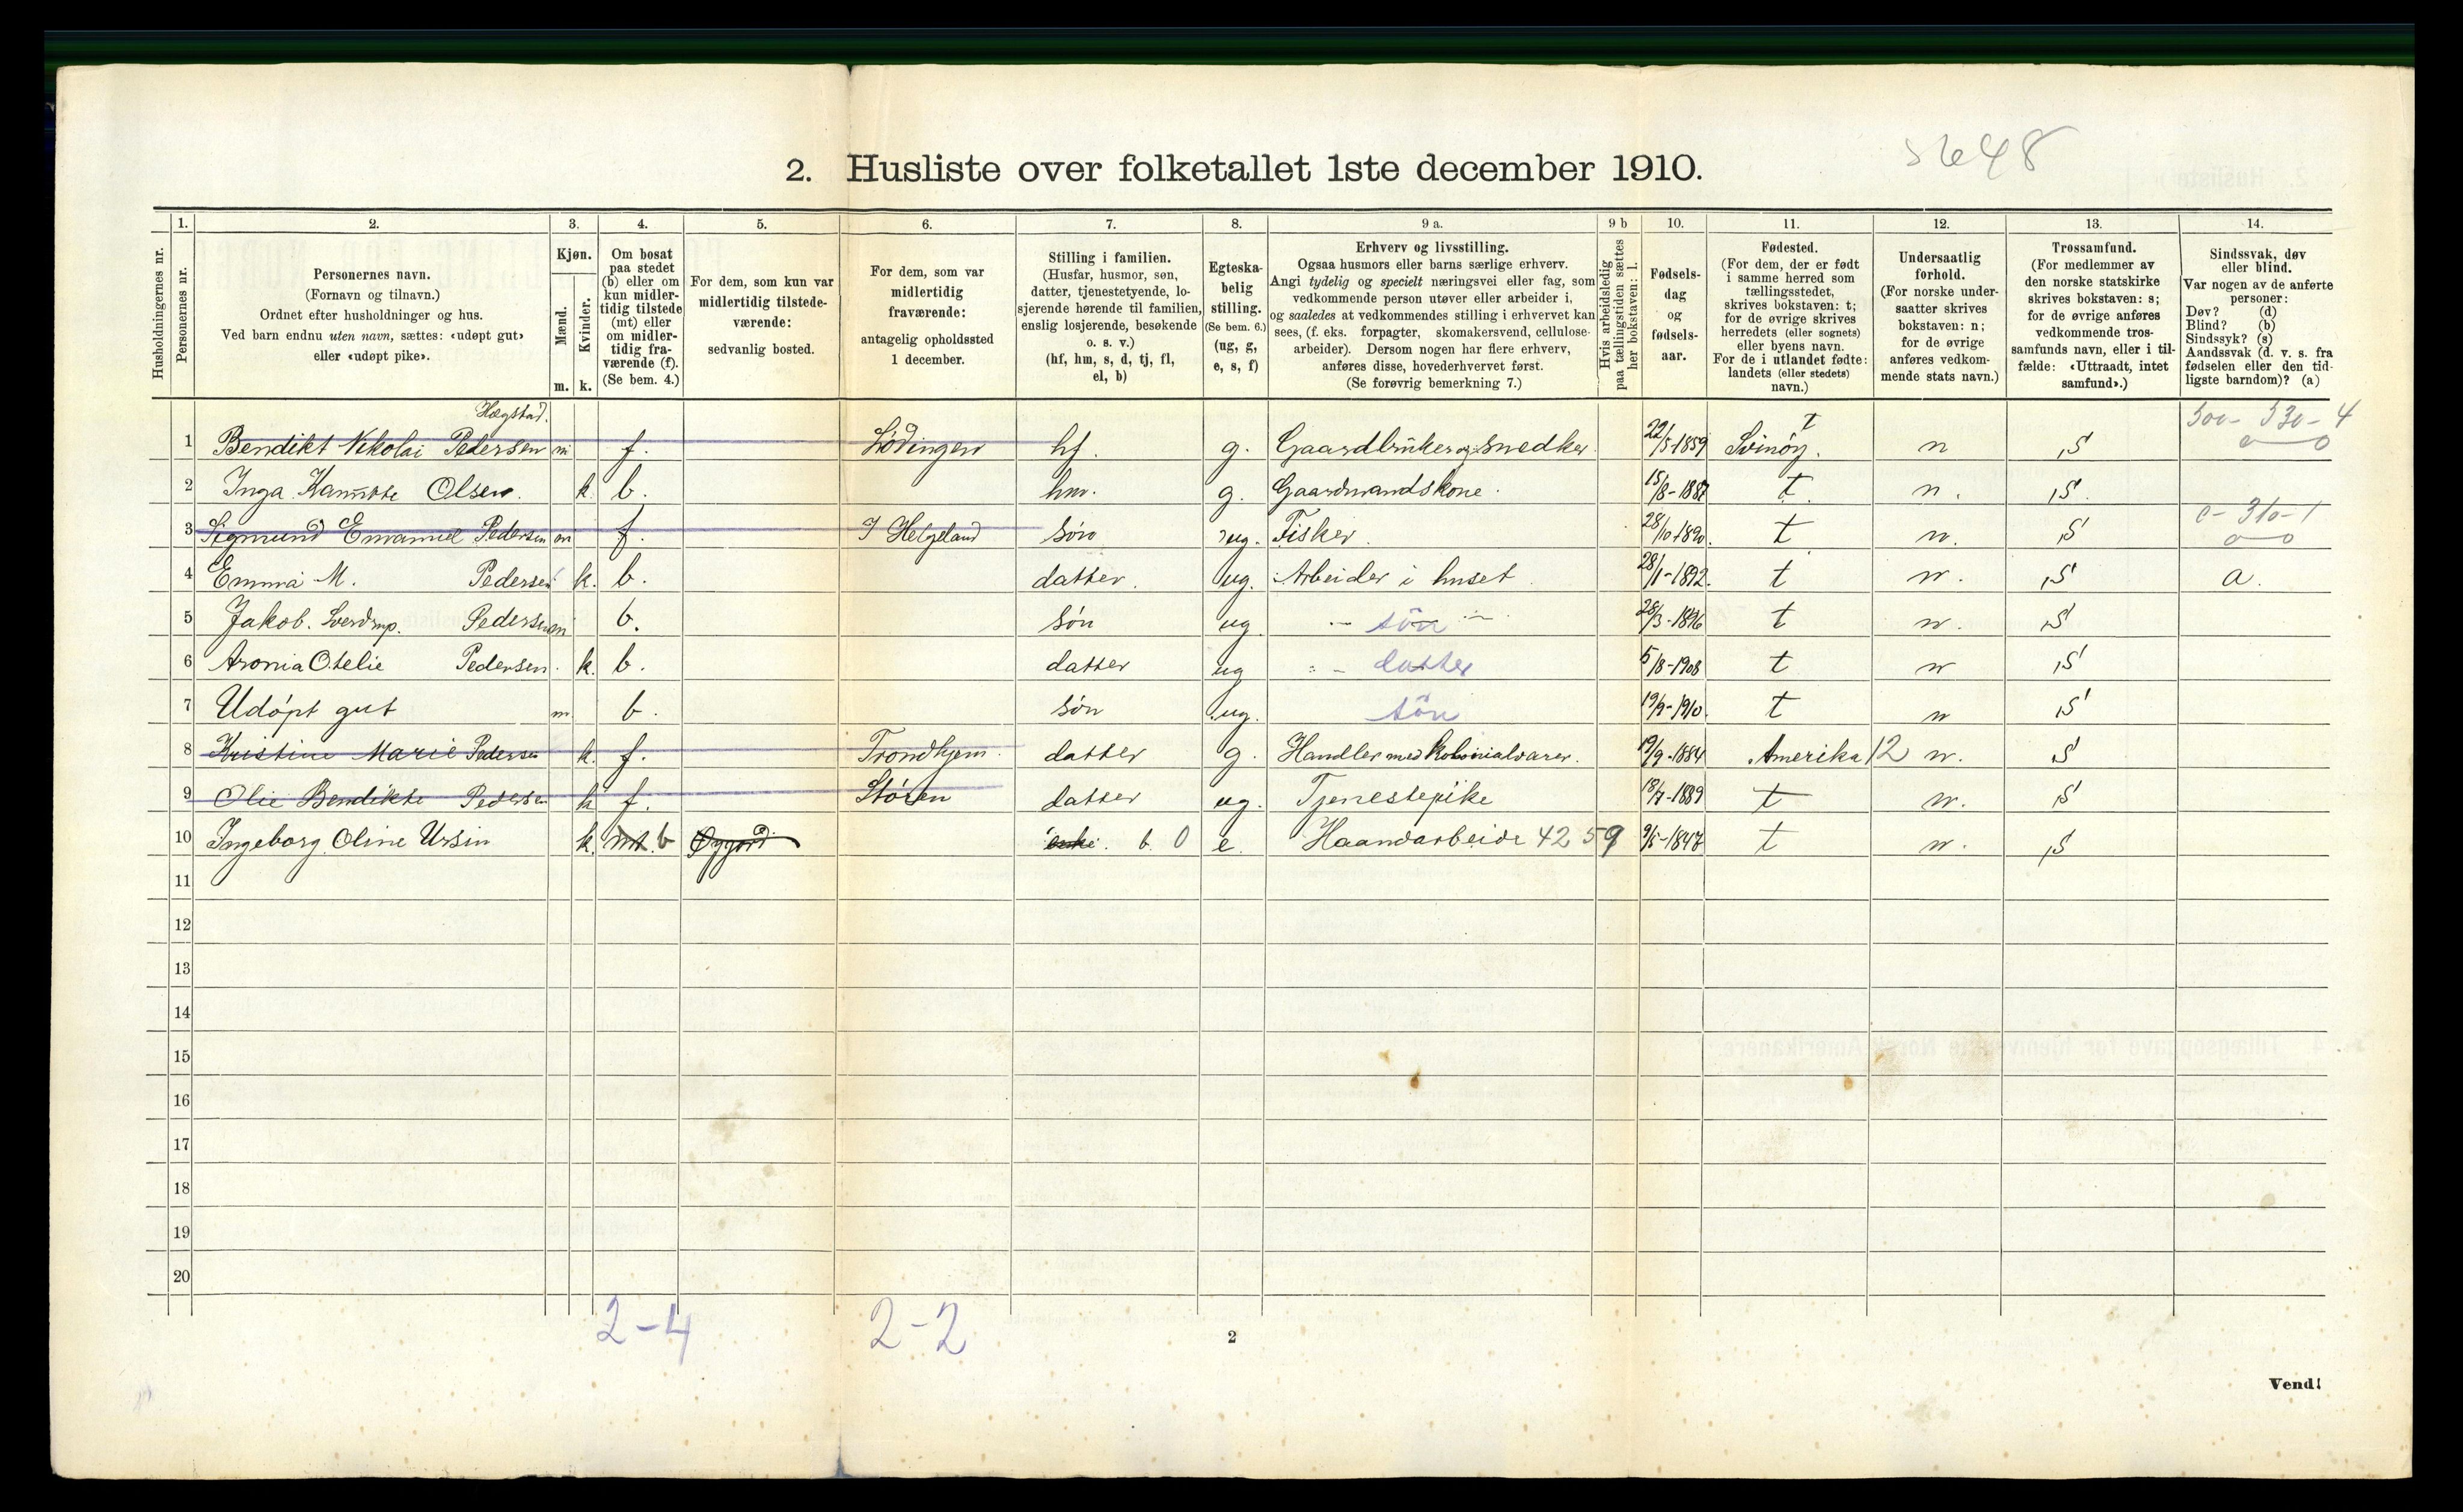 s 648
2. Husliste over folketallet 1ste december 1910.
Husholdningernes nr.
1.
Personernes nr.
2.
Personernes navn.
(Fornavn og tilnavn.)
Ordnet efter husholdninger og hus.
Ved barn endnu uten navn, sættes: «udøpt gut»
eller «udøpt pike».
3.
Kjøn.
Mænd.
Kvinder.
m. k.
4.
Om bosat
paa stedet
(b) eller om
kun midler-
tidig tilstede
(mt) eller
om midler-
tidig fra-
værende (f).
(Se bem. 4.)
5.
For dem, som kun var
midlertidig tilstede-
værende:
sedvanlig bosted.
6.
For dem, som var
midlertidig
fraværende:
antagelig opholdssted
1 december.
7.
Stilling i familien.
(Husfar, husmor, søn,
datter, tjenestetyende, lo-
sjerende hørende til familien,
enslig losjerende, besøkende
o. s. v.)
(hf, hm, s, d, tj, fl,
el, b)
8.
Egteska-
belig
stilling.
(Se bem. 6.)
(ug, g,
e, s, f)
9 a.
Erhverv og livsstilling.
Ogsaa husmors eller barns særlige erhverv.
Angi tydelig og specielt næringsvei eller fag, som
vedkommende person utøver eller arbeider i,
og saaledes at vedkommendes stilling i erhvervet kan
sees, (f. eks. forpagter, skomakersvend, cellulose-
arbeider). Dersom nogen har flere erhverv,
anføres disse, hovederhvervet først.
(Se forøvrig bemerkning 7.)
9 b
Hvis arbeidsledig
paa tællingstiden sættes
her bokstaven: l.
10.
Fødsels-
dag
og
fødsels-
aar.
11.
Fødested.
(For dem, der er født
i samme herred som
tællingsstedet,
skrives bokstaven: t;
for de øvrige skrives
herredets (eller sognets)
eller byens navn.
For de i utlandet fødte:
landets (eller stedets)
navn.)
12.
Undersaatlig
forhold.
(For norske under-
saatter skrives
bokstaven: n;
for de øvrige
anføres vedkom-
mende stats navn.)
13.
Trossamfund.
(For medlemmer av
den norske statskirke
skrives bokstaven: s;
for de øvrige anføres
vedkommende tros-
samfunds navn, eller i til-
fælde: «Uttraadt, intet
samfund».)
14.
Sindssvak, døv
eller blind.
Var nogen av de anførte
personer:
Døv? (d)
Blind? (b)
Sindssyk? (s)
Aandssvak (d. v. s. fra
fødselen eller den tid-
ligste barndom)? (a)
Hægstad. t 500- 530- 4
1 Bendikt Nikolai Pedersen m f. Lödingen hf. g. Gaardbruker og snedker. 22/5 1859 Svinöy. n s 0—0
2 Inga Olsen. k b. hm. g. Gaardmandskone. 15/8-1887 t. n. s. 0- 310- 1
3 Sigmund Emanuel Pedersen m f. I Helgeland sön ug. Fisker. 28/10 1890. t n. s 0—0
4 Emma M. Pedersen k. b. datter. ug. Arbeider i huset. 28/1-1892. t n. s a.
5 Jakob. Sverdrup. Pedersen m b. sön ug. -"- sön -"- 28/3-1896 t n. s
6 Aronia Otelie Pedersen. k. b. datter ug " - datter 5/8-1908 t n s
7 Udøpt gut m. b. sön ug. sön 19/9-1910. t n s
8 Kristine Marie Pedersen k. f. Trondhjem. datter g. Handler med kolonialvarer. 19/9-1884 Amerika 12 n. s
9 Olie Bendikte Pedersen k f. Stören datter ug. Tjenestepike 18/7-1889 t n. s
10 Ingeborg Oline Ursin k. mt. b Öygard enke. b. 0 e. Haandarbeide 42 59 9/5-1847 t n. s
11
12
13
14
15
16
17
18
19
20
2-4 2-2
2
Vend!